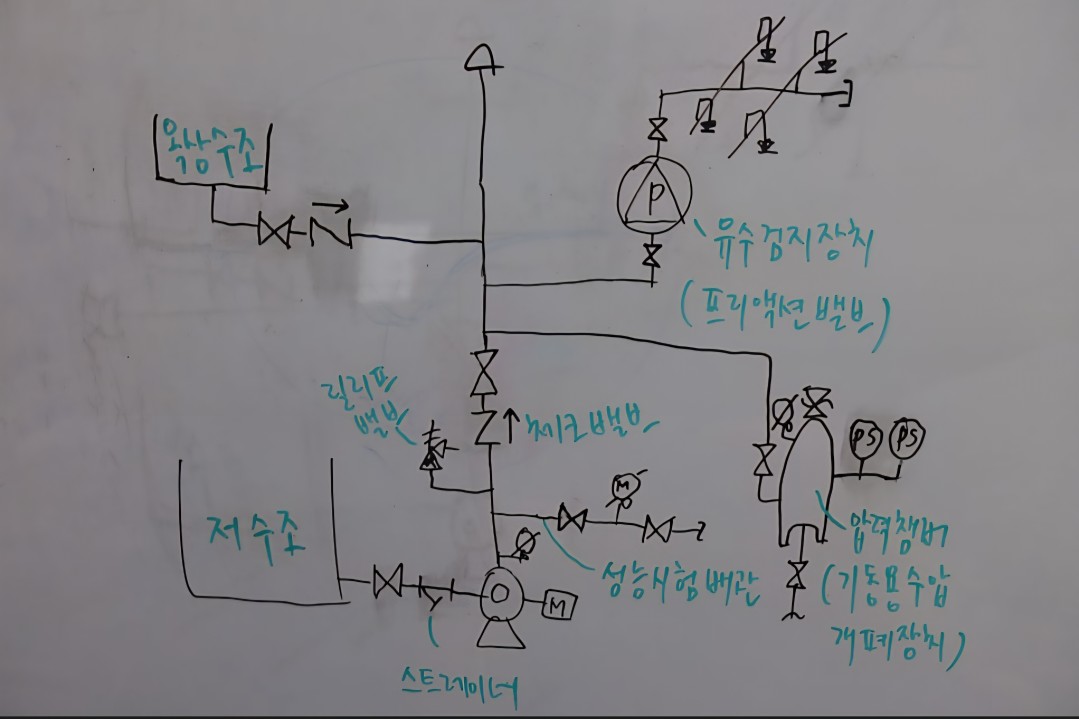 옥상수조
P
유수검지장치
(프리액션밸브)
릴리프
밸브
체크밸브
M
PS PS
저수조
성능시험배관
압력챔버
(기동용수압
개폐장치)
M
스트레이너